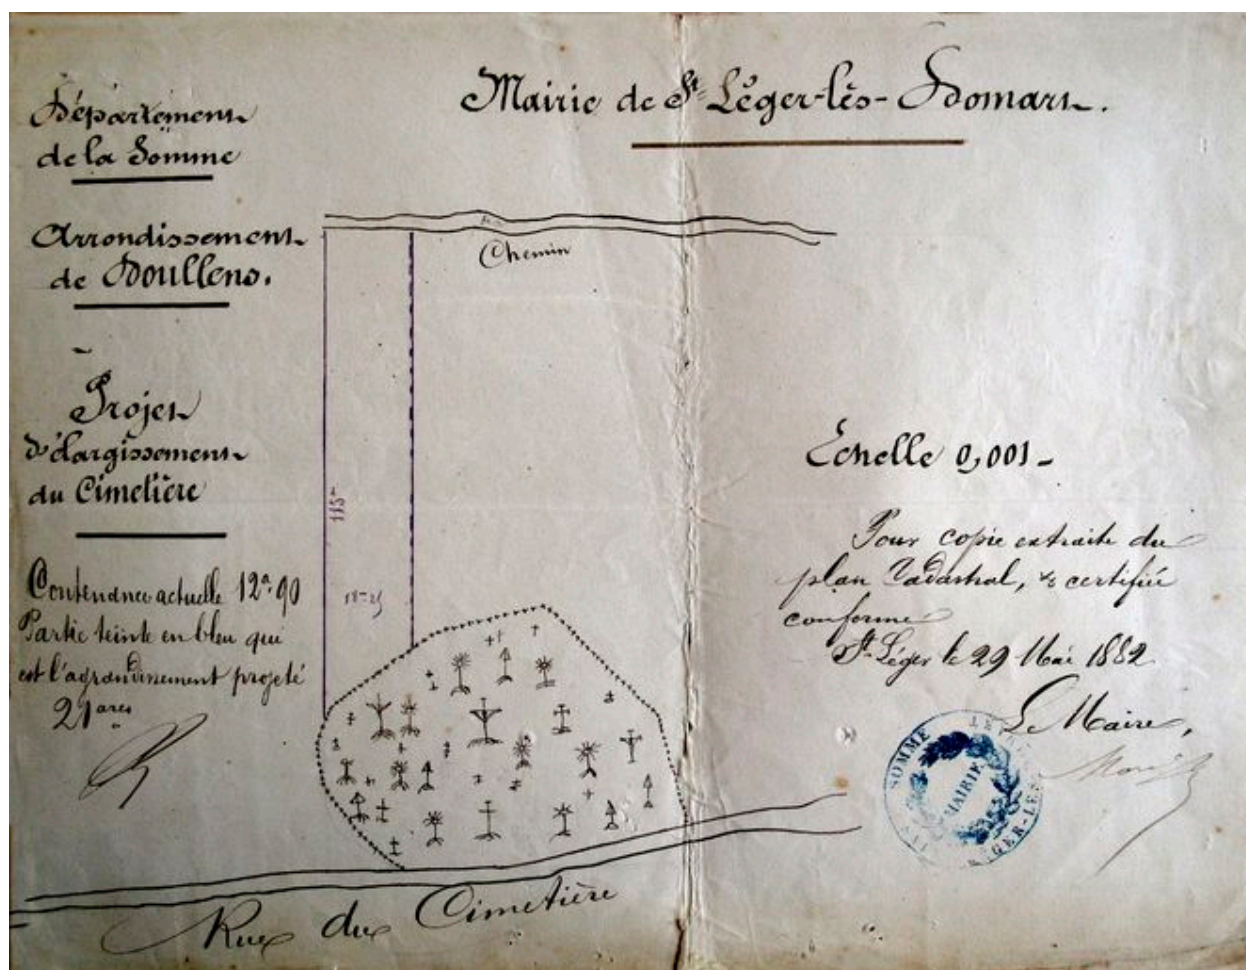 Mairie de St Léger-lès-Domart.
Département
de la Somme
Arrondissement
de Doullens.
Projet
d'élargissement
du Cimetière
Contenance actuelle 12a 90
Partie teinte en bleu qui
est l'agrandissement projeté
21 ares
Chemin
115m
Echelle 0,001
Pour copie extraite du
plan Cadastral, & certifiée
conforme
St Léger le 29 Mai 1882
Le Maire,
SOMME
MAIRIE
LEGER-LES
Rue du Cimetière